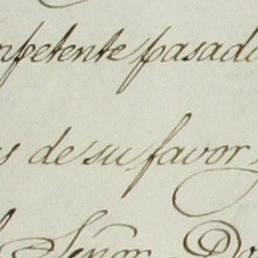 mpetente pasado
s de su favor
Señor Do